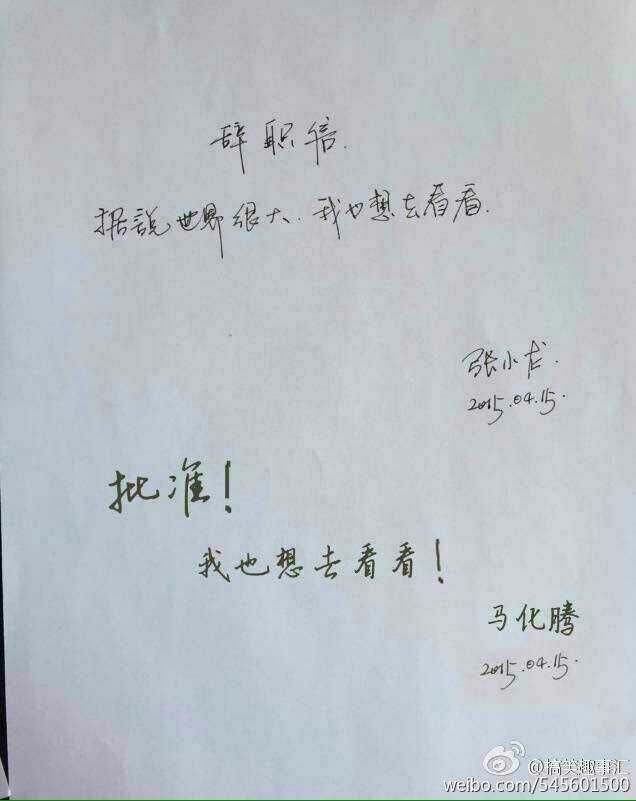 辞职信.
据説世界很大.我也想去看看.
张小龙.
2015.04.15.
批准!
我也想去看看!
马化腾
2015.04.15.
@搞笑趣事汇
weibo.com/545601500